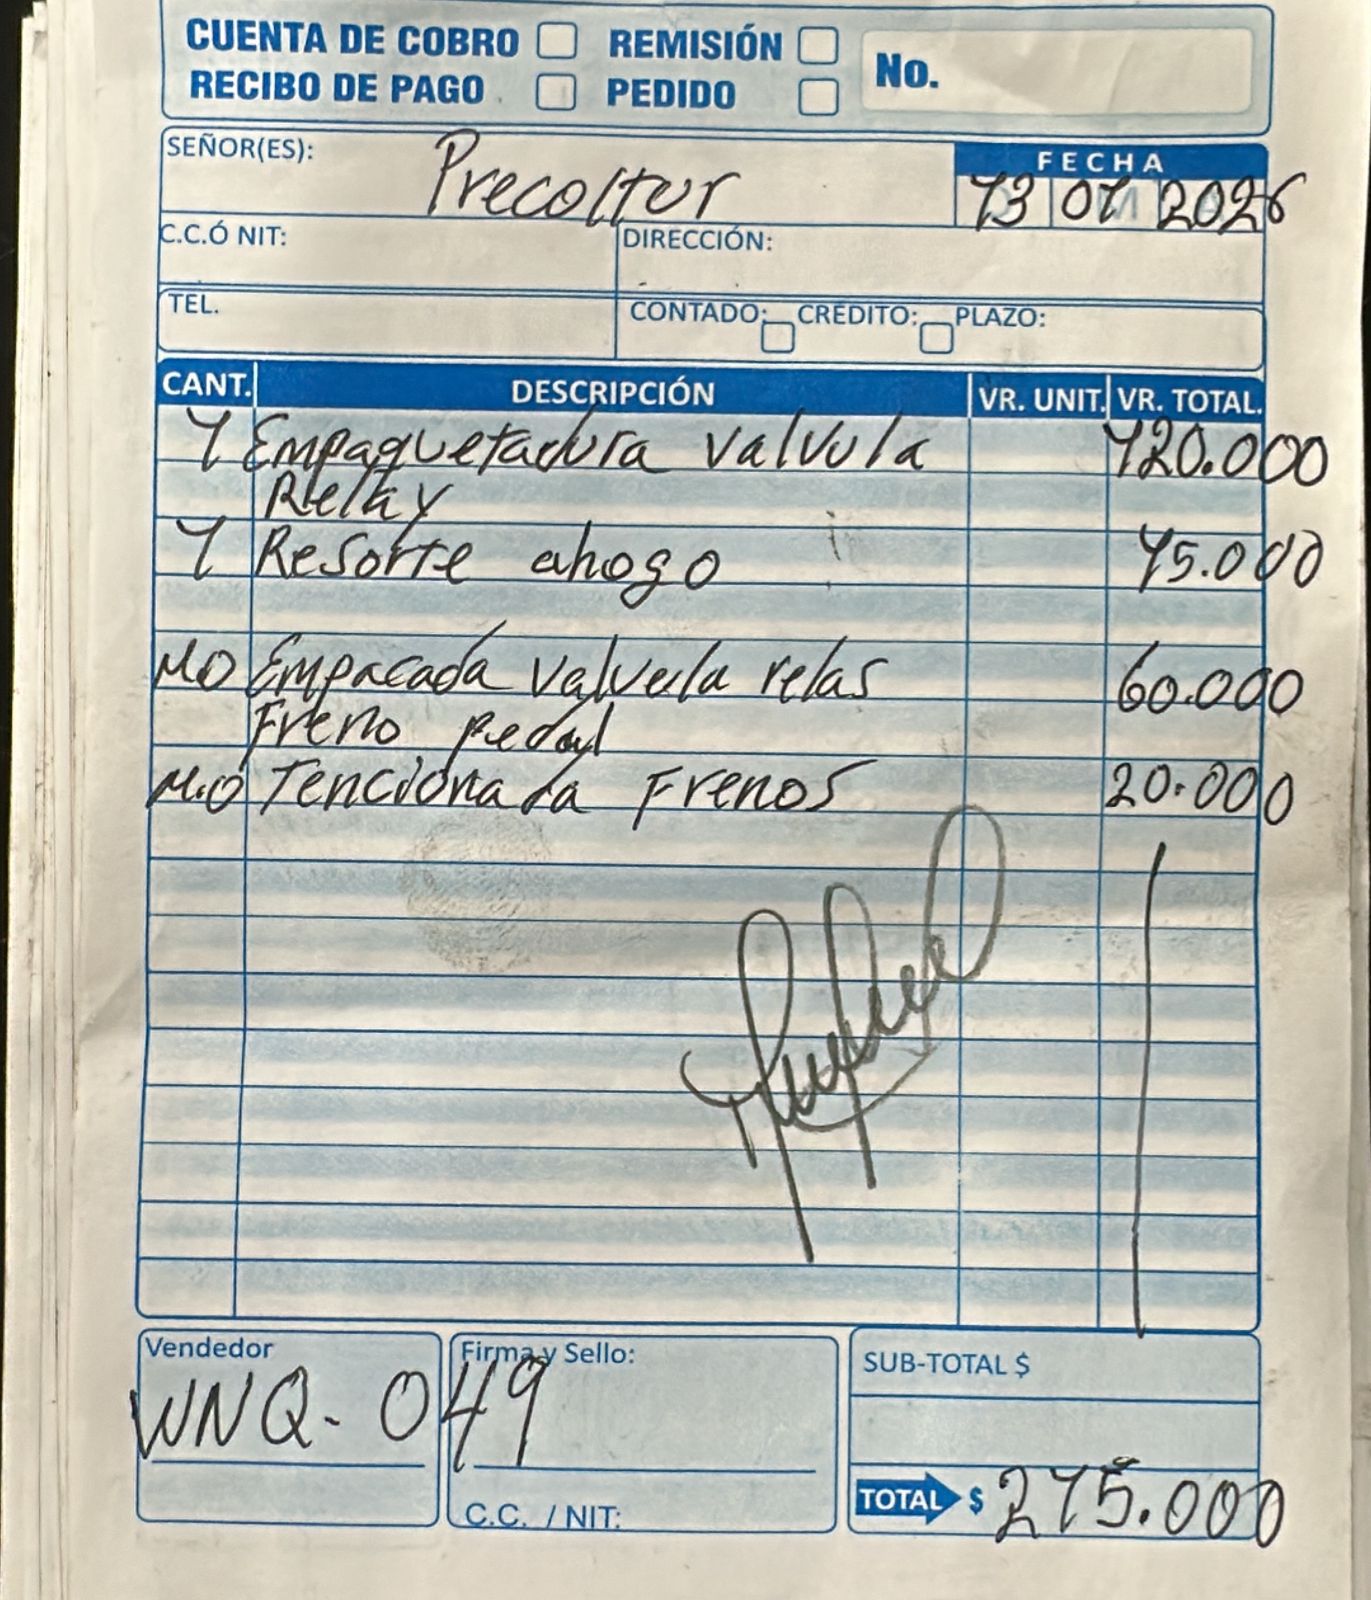 CUENTA DE COBRO REMISIÓN No.
RECIBO DE PAGO PEDIDO
SEÑOR(ES): Precoltur FECHA
13 01 2026
C.C.Ó NIT: DIRECCIÓN:
TEL. CONTADO: CRÉDITO: PLAZO:
CANT. DESCRIPCIÓN VR. UNIT. VR. TOTAL.
1 Empaquetadura valvula 120.000
Relay
1 Resorte ahogo 15.000
M.O Empacada valvula relas 60.000
Freno pedal
M.O Tencionada Frenos 20.000
Vendedor Firma y Sello: SUB-TOTAL $
WNQ-049
C.C. / NIT: TOTAL $ 215.000